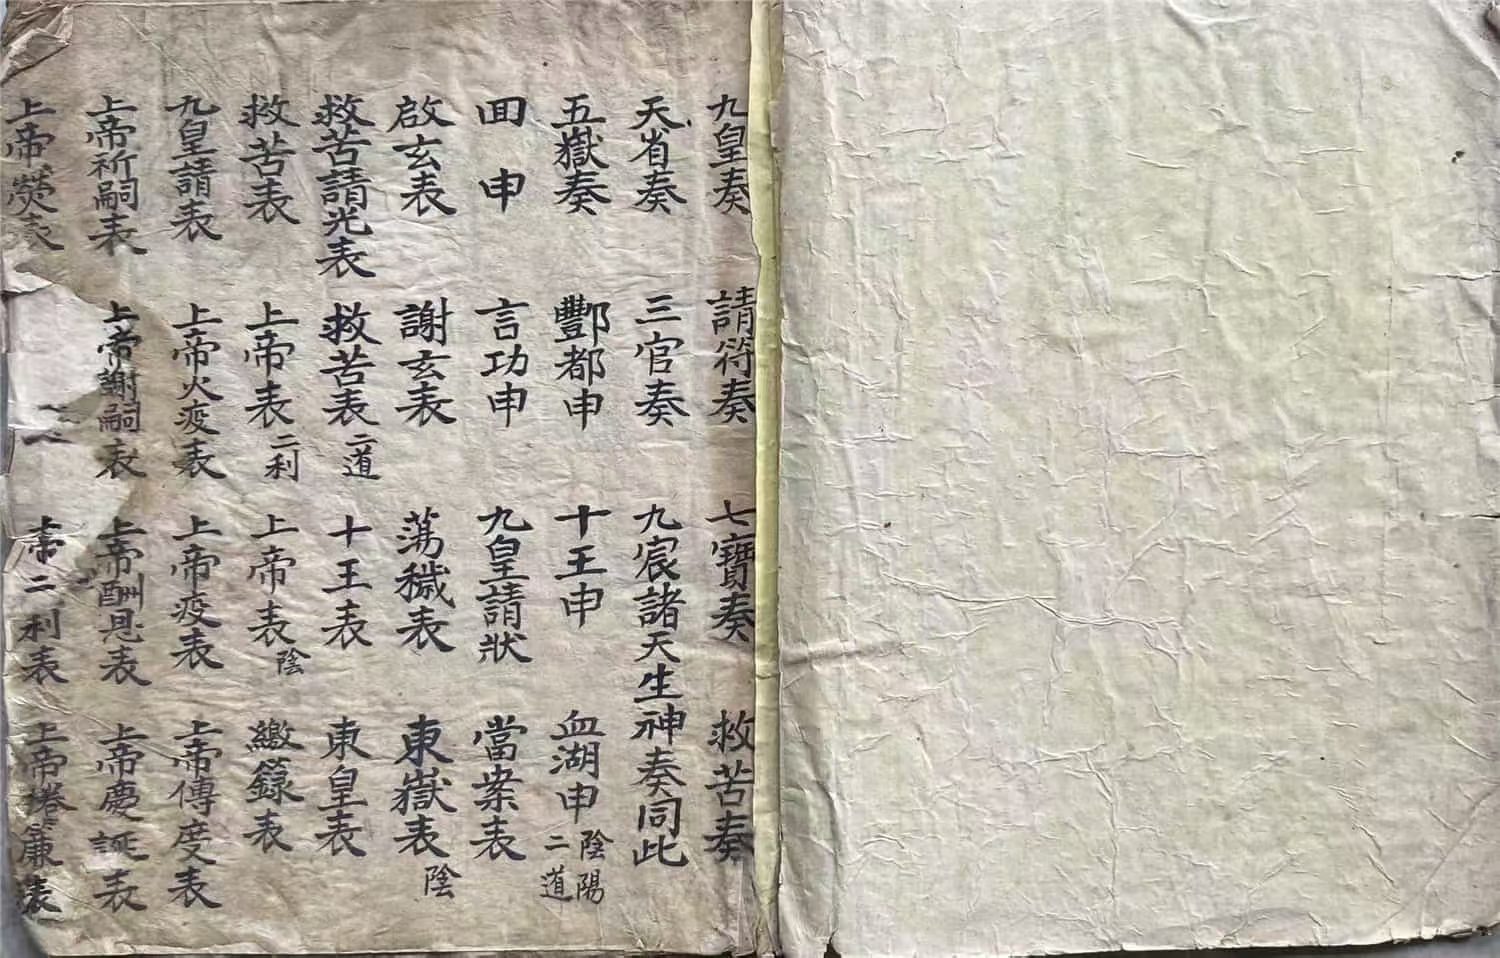 九皇奏 請符奏 七寶奏 救苦奏
天省奏 三官奏 九宸諸天生神奏同此
五嶽奏 酆都申 十王申 血湖申 陰陽二道
回申 言功申 九皇請狀 當案表
啟玄表 謝玄表 蕩穢表 東嶽表 陰
救苦請光表 救苦表 二道 十王表 東皇表
救苦表 上帝表 二利 上帝表 陰 繳籙表
九皇請表 上帝火疫表 上帝疫表 上帝傳度表
上帝祈嗣表 上帝謝嗣表 上帝酬恩表 上帝慶誕表
上帝熒表 帝二利表 上帝捲簾表